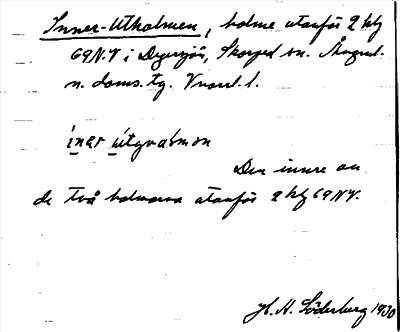 Inner-Utholmen, holme utanför 2 klz
69 NV i Degersjön, Skorped sn. Ångml.
n. doms. tg. Vnorrl. l.
inər
Den innre av
de två holmarna utanför 2 klz 69 NV.
H. H. Söderberg 1930